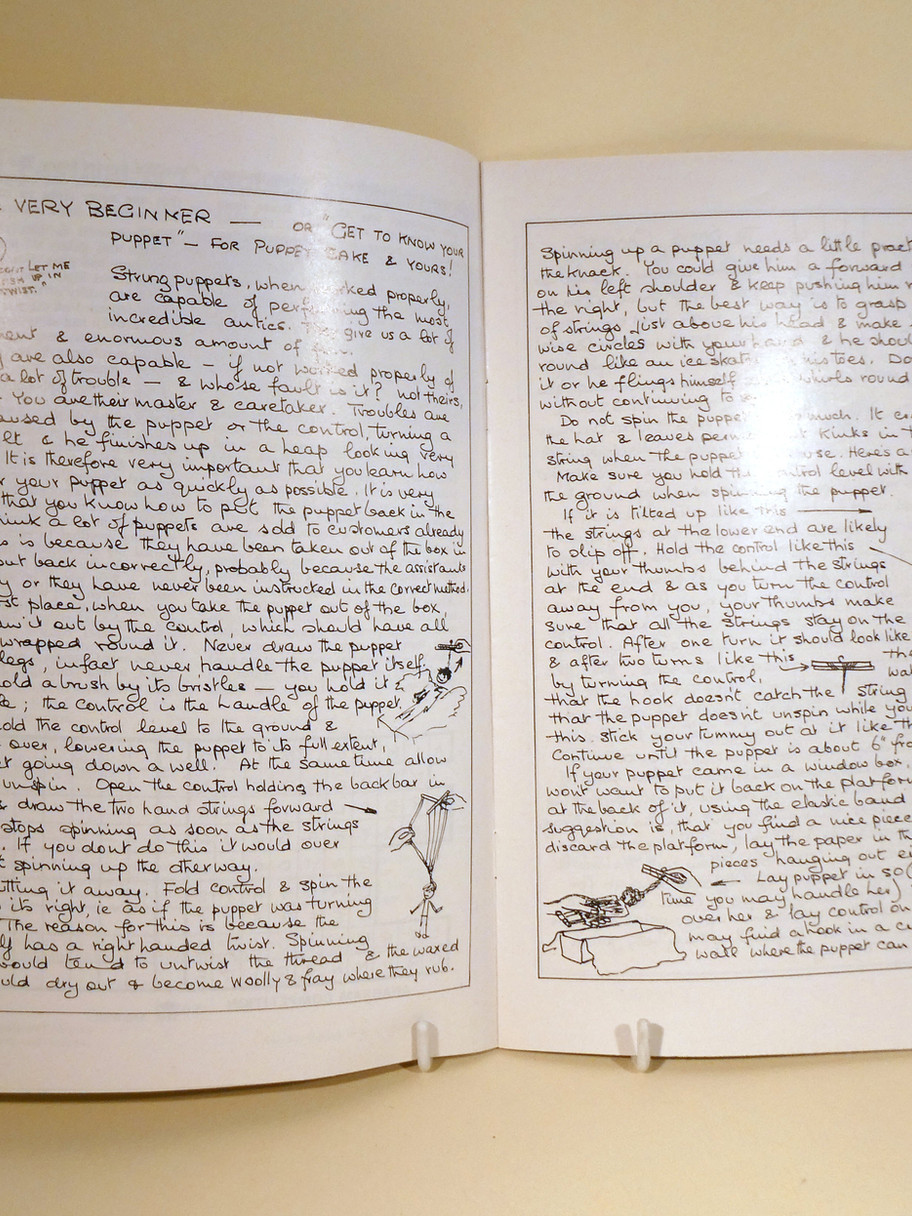 VERY BEGINNER — OR "GET TO KNOW YOUR
PUPPET" — FOR PUPPET SAKE & YOURS!
LET ME
UP IN
TWIST."
String puppets, when worked properly,
are capable of performing the most
incredible antics. They give us a lot of
& enormous amount of fun.
are also capable — if not worked properly of
a lot of trouble — & whose fault is it? not theirs,
You are their master & caretaker. Troubles are
by the puppet or the control, turning a
& he finishes up in a heap looking very
It is therefore very important that you learn how
your puppet as quickly as possible. It is very
that you know how to put the puppet back in the
a lot of puppets are sold to customers already
is because they have been taken out of the box in
back incorrectly, probably because the assistants
or they have never been instructed in the correct method.
place, when you take the puppet out of the box,
it out by the control, which should have all
wrapped round it. Never draw the puppet
legs, infact never handle the puppet itself.
a brush by its bristles — you hold it
; the control is the handle of the puppet.
the control level to the ground &
over, lowering the puppet to its full extent,
going down a well. At the same time allow
unspin. Open the control holding the back bar in
& draw the two hand strings forward
stops spinning as soon as the strings
. If you dont do this it would over
spinning up the other way.
it away. Fold control & spin the
its right, ie as if the puppet was turning
The reason for this is because the
has a right handed twist. Spinning
would tend to untwist the thread & the waxed
dry out & become woolly & fray where they rub.
Spinning up a puppet needs a little
the knack. You could give him a forward
on his left shoulder & keep pushing him
the right, but the best way is to grasp
of strings just above his head & make
wise circles with your hand & he
round like an ice his toes.
it or he flings himself whirls round
without continuing to
Do not spin the puppet much. It
the hat & leaves kinks in
string when the puppet use. Heres a
Make sure you hold the control level with
the ground when spinning the puppet.
If it is tilted up like this
the strings at the lower end are likely
to slip off. Hold the control like this
with your thumbs behind the strings
at the end & as you turn the control
away from you, your thumbs make
sure that all the strings stay on the
control. After one turn it should look like
& after two turns like this
by turning the control,
that the hook doesn't catch the string
that the puppet doesnt unspin while you
this. stick your tummy out at it like
Continue until the puppet is about 6"
If your puppet came in a window box,
wont want to put it back on the
at the back of it, using the elastic band
suggestion is, that you find a nice piece
discard the platform, lay the paper in
pieces hanging out
Lay puppet in so
time you may handle her)
over her & lay control on
may find a hook in a
wall where the puppet can